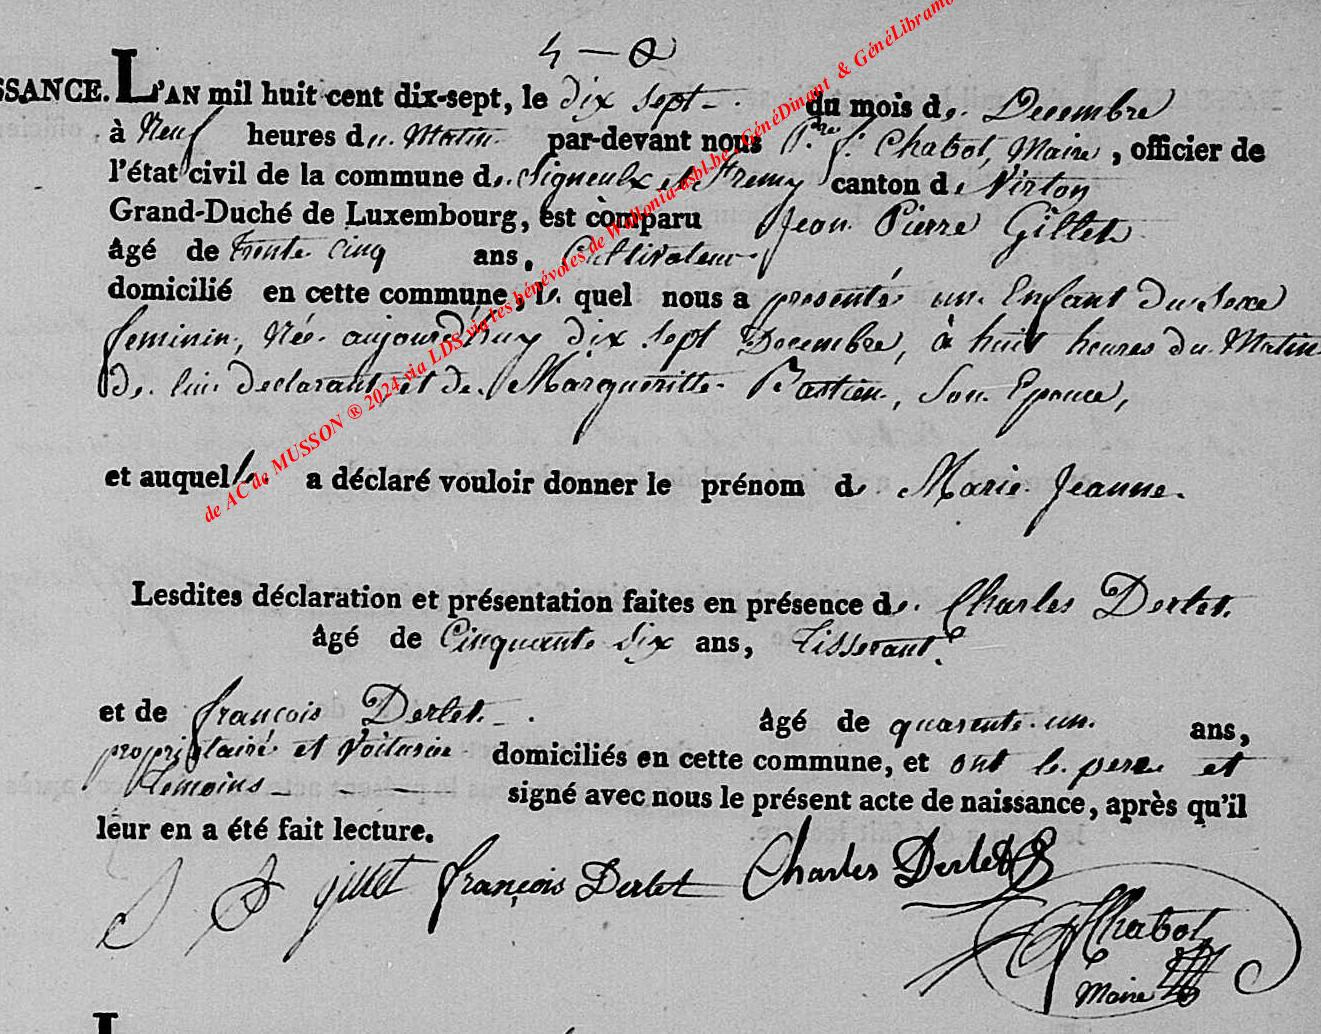 4 — 8
SSANCE. L'AN mil huit cent dix-sept, le dix sept du mois de Decembre
à Neuf heures du Matin par-devant nous Chabot, Maire, officier de
l'état civil de la commune de Signeulx et Fremy canton de Virton
Grand-Duché de Luxembourg, est comparu Jean Pierre Gillet
âgé de trente cinq ans, Cultivateur
domicilié en cette commune, le quel nous a presenté un Enfant du Sexe
feminin, Née aujourd'huy dix sept Decembre, à huit heures du Matin
de lui declarant et de Margueritte Bastien, Son Epouce,
et auquelle a déclaré vouloir donner le prénom de Marie Jeanne.
Lesdites déclaration et présentation faites en présence de Charles Derlet.
âgé de Cinquante Six ans, Tisserant
et de françois Derlet. âgé de quarente un ans,
propriétaire et Voiturier domiciliés en cette commune, et ont le pere et
temoins signé avec nous le présent acte de naissance, après qu'il
leur en a été fait lecture.
J P jillet françois Derlet Charles Derlet
Chabot
Maire
de AC de MUSSON ® 2024 via LDS via les bénévoles de Wallonia-asbl.be, GénéDinant & GénéLibramo
L